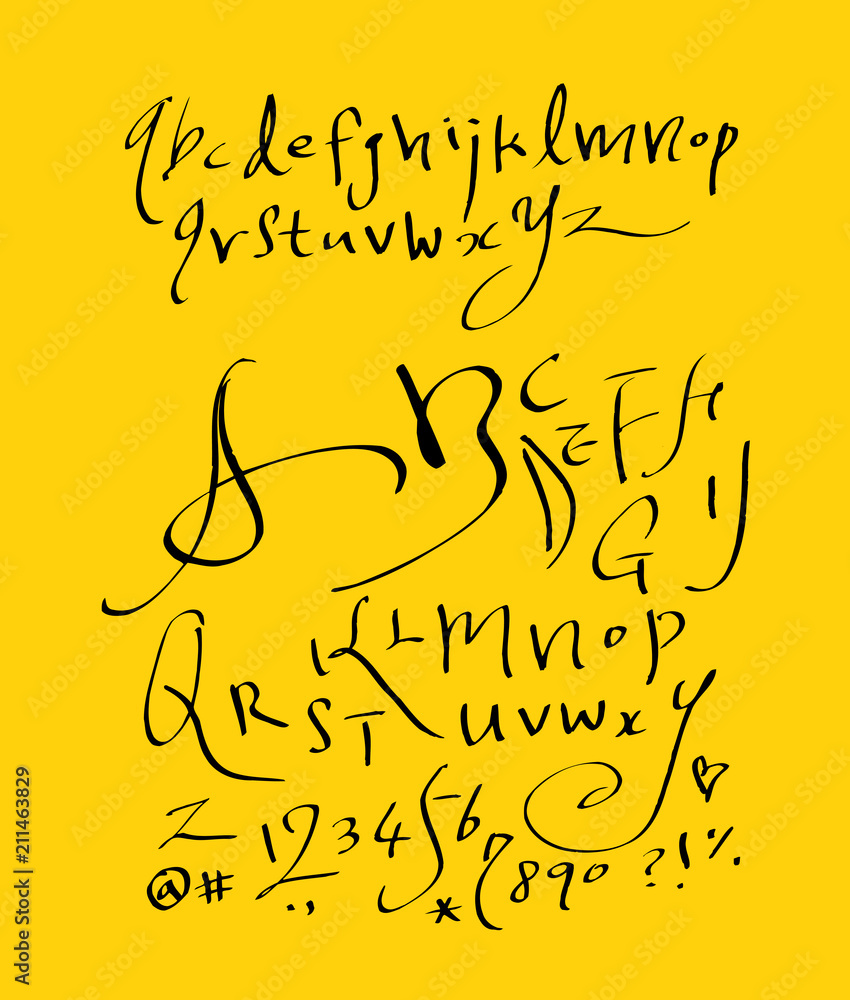 abcdefghijklmnop
qrstuvwxyz
ABCDEFGH
IJ
KLMNOP
QRSTUVWXY
Z1234567890?!%
@#.,*
Adobe Stock | #211463829